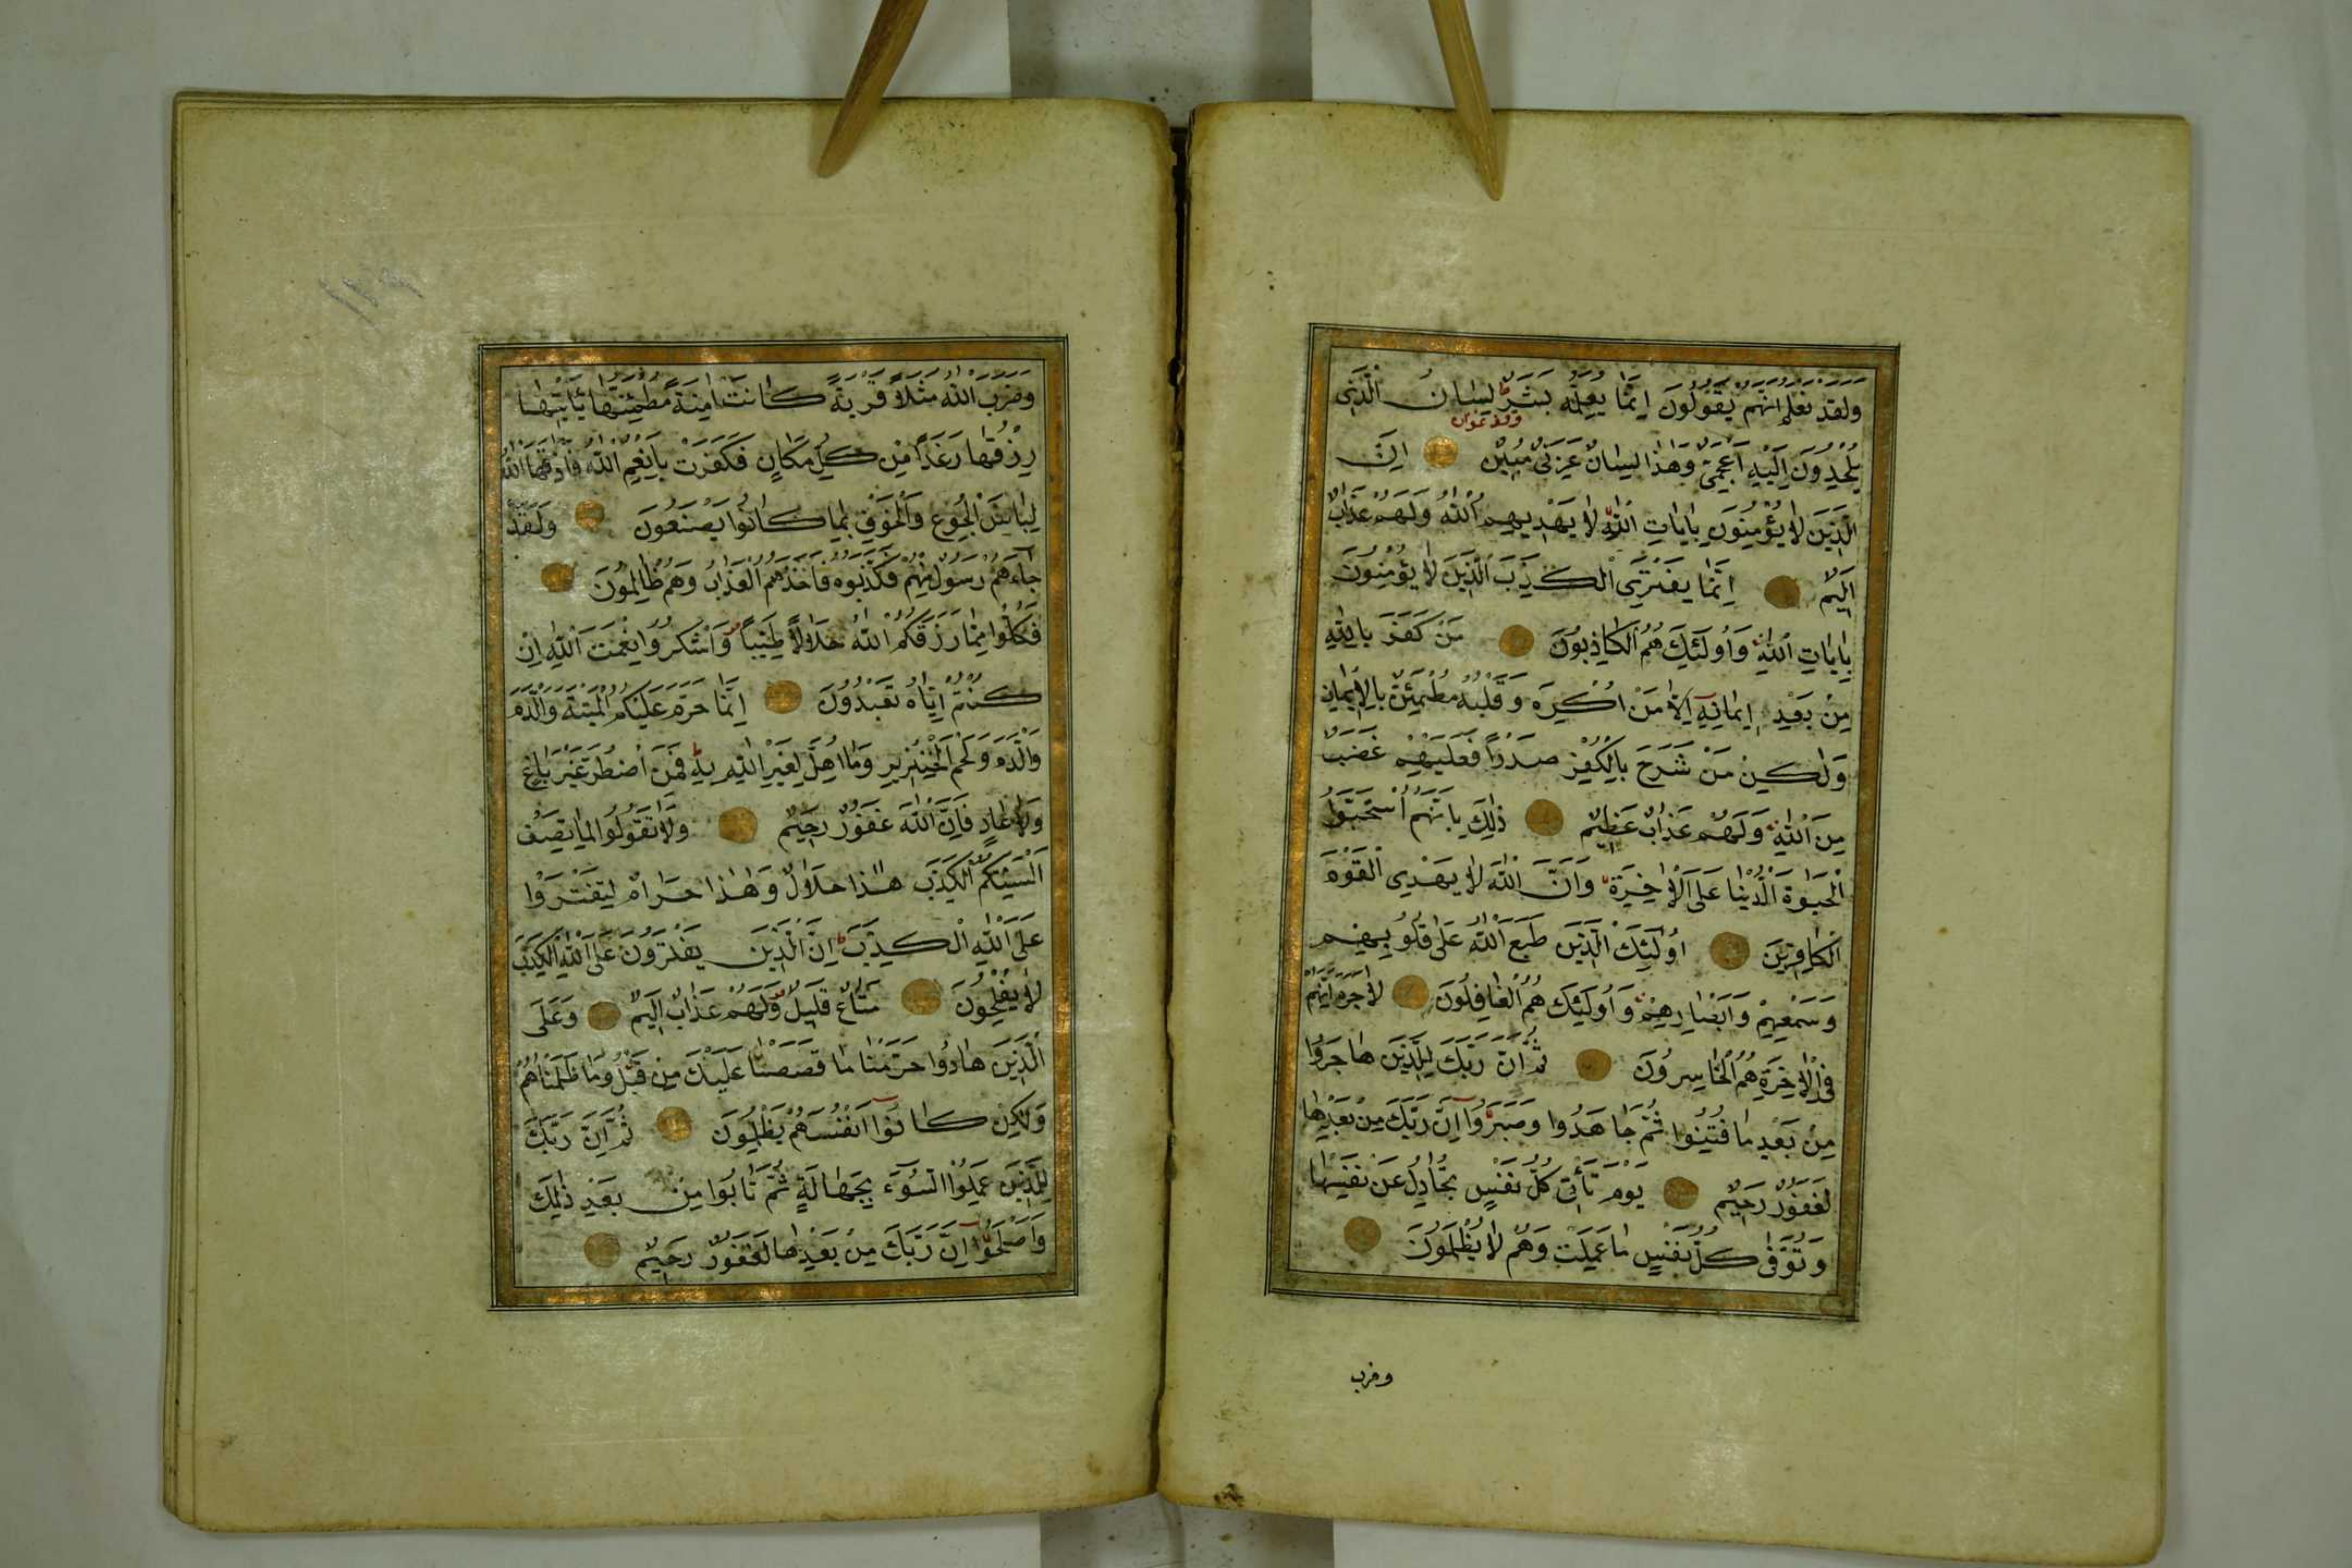 وَلَقَدْ نَعْلَمُ اَنَّهُمْ يَقُولُونَ اِنَّمَا يُعَلِّمُهُ بَشَرٌ لِسَانُ الَّذِى
يُلْحِدُونَ اِلَيْهِ اَعْجَمِىٌّ وَهٰذَا لِسَانٌ عَرَبِىٌّ مُبِينٌ اِنَّ
الَّذِينَ لَا يُؤْمِنُونَ بِاٰيَاتِ اللّٰهِ لَا يَهْدِيهِمُ اللّٰهُ وَلَهُمْ عَذَابٌ
اَلِيمٌ اِنَّمَا يَفْتَرِى الْكَذِبَ الَّذِينَ لَا يُؤْمِنُونَ
بِاٰيَاتِ اللّٰهِ وَاُولٰئِكَ هُمُ الْكَاذِبُونَ مَنْ كَفَرَ بِاللّٰهِ
مِنْ بَعْدِ اِيمَانِهِ اِلَّا مَنْ اُكْرِهَ وَقَلْبُهُ مُطْمَئِنٌّ بِالْاِيمَانِ
وَلٰكِنْ مَنْ شَرَحَ بِالْكُفْرِ صَدْرًا فَعَلَيْهِمْ غَضَبٌ
مِنَ اللّٰهِ وَلَهُمْ عَذَابٌ عَظِيمٌ ذٰلِكَ بِاَنَّهُمُ اسْتَحَبُّوا
الْحَيٰوةَ الدُّنْيَا عَلَى الْاٰخِرَةِ وَاَنَّ اللّٰهَ لَا يَهْدِى الْقَوْمَ
الْكَافِرِينَ اُولٰئِكَ الَّذِينَ طَبَعَ اللّٰهُ عَلٰى قُلُوبِهِمْ
وَسَمْعِهِمْ وَاَبْصَارِهِمْ وَاُولٰئِكَ هُمُ الْغَافِلُونَ لَا جَرَمَ اَنَّهُمْ
فِى الْاٰخِرَةِ هُمُ الْخَاسِرُونَ ثُمَّ اِنَّ رَبَّكَ لِلَّذِينَ هَاجَرُوا
مِنْ بَعْدِ مَا فُتِنُوا ثُمَّ جَاهَدُوا وَصَبَرُوا اِنَّ رَبَّكَ مِنْ بَعْدِهَا
لَغَفُورٌ رَحِيمٌ يَوْمَ تَأْتِى كُلُّ نَفْسٍ تُجَادِلُ عَنْ نَفْسِهَا
وَتُوَفّٰى كُلُّ نَفْسٍ مَا عَمِلَتْ وَهُمْ لَا يُظْلَمُونَ
وضرب
وَضَرَبَ اللّٰهُ مَثَلًا قَرْيَةً كَانَتْ اٰمِنَةً مُطْمَئِنَّةً يَأْتِيهَا
رِزْقُهَا رَغَدًا مِنْ كُلِّ مَكَانٍ فَكَفَرَتْ بِاَنْعُمِ اللّٰهِ فَاَذَاقَهَا اللّٰهُ
لِبَاسَ الْجُوعِ وَالْخَوْفِ بِمَا كَانُوا يَصْنَعُونَ وَلَقَدْ
جَاءَهُمْ رَسُولٌ مِنْهُمْ فَكَذَّبُوهُ فَاَخَذَهُمُ الْعَذَابُ وَهُمْ ظَالِمُونَ
فَكُلُوا مِمَّا رَزَقَكُمُ اللّٰهُ حَلَالًا طَيِّبًا وَاشْكُرُوا نِعْمَتَ اللّٰهِ اِنْ
كُنْتُمْ اِيَّاهُ تَعْبُدُونَ اِنَّمَا حَرَّمَ عَلَيْكُمُ الْمَيْتَةَ وَالدَّمَ
وَالدَّمَ وَلَحْمَ الْخِنْزِيرِ وَمَا اُهِلَّ لِغَيْرِ اللّٰهِ بِهِ فَمَنِ اضْطُرَّ غَيْرَ بَاغٍ
وَلَا عَادٍ فَاِنَّ اللّٰهَ غَفُورٌ رَحِيمٌ وَلَا تَقُولُوا لِمَا تَصِفُ
اَلْسِنَتُكُمُ الْكَذِبَ هٰذَا حَلَالٌ وَهٰذَا حَرَامٌ لِتَفْتَرُوا
عَلَى اللّٰهِ الْكَذِبَ اِنَّ الَّذِينَ يَفْتَرُونَ عَلَى اللّٰهِ الْكَذِبَ
لَا يُفْلِحُونَ مَتَاعٌ قَلِيلٌ وَلَهُمْ عَذَابٌ اَلِيمٌ وَعَلَى
الَّذِينَ هَادُوا حَرَّمْنَا مَا قَصَصْنَا عَلَيْكَ مِنْ قَبْلُ وَمَا ظَلَمْنَاهُمْ
وَلٰكِنْ كَانُوا اَنْفُسَهُمْ يَظْلِمُونَ ثُمَّ اِنَّ رَبَّكَ
لِلَّذِينَ عَمِلُوا السُّوءَ بِجَهَالَةٍ ثُمَّ تَابُوا مِنْ بَعْدِ ذٰلِكَ
وَاَصْلَحُوا اِنَّ رَبَّكَ مِنْ بَعْدِهَا لَغَفُورٌ رَحِيمٌ